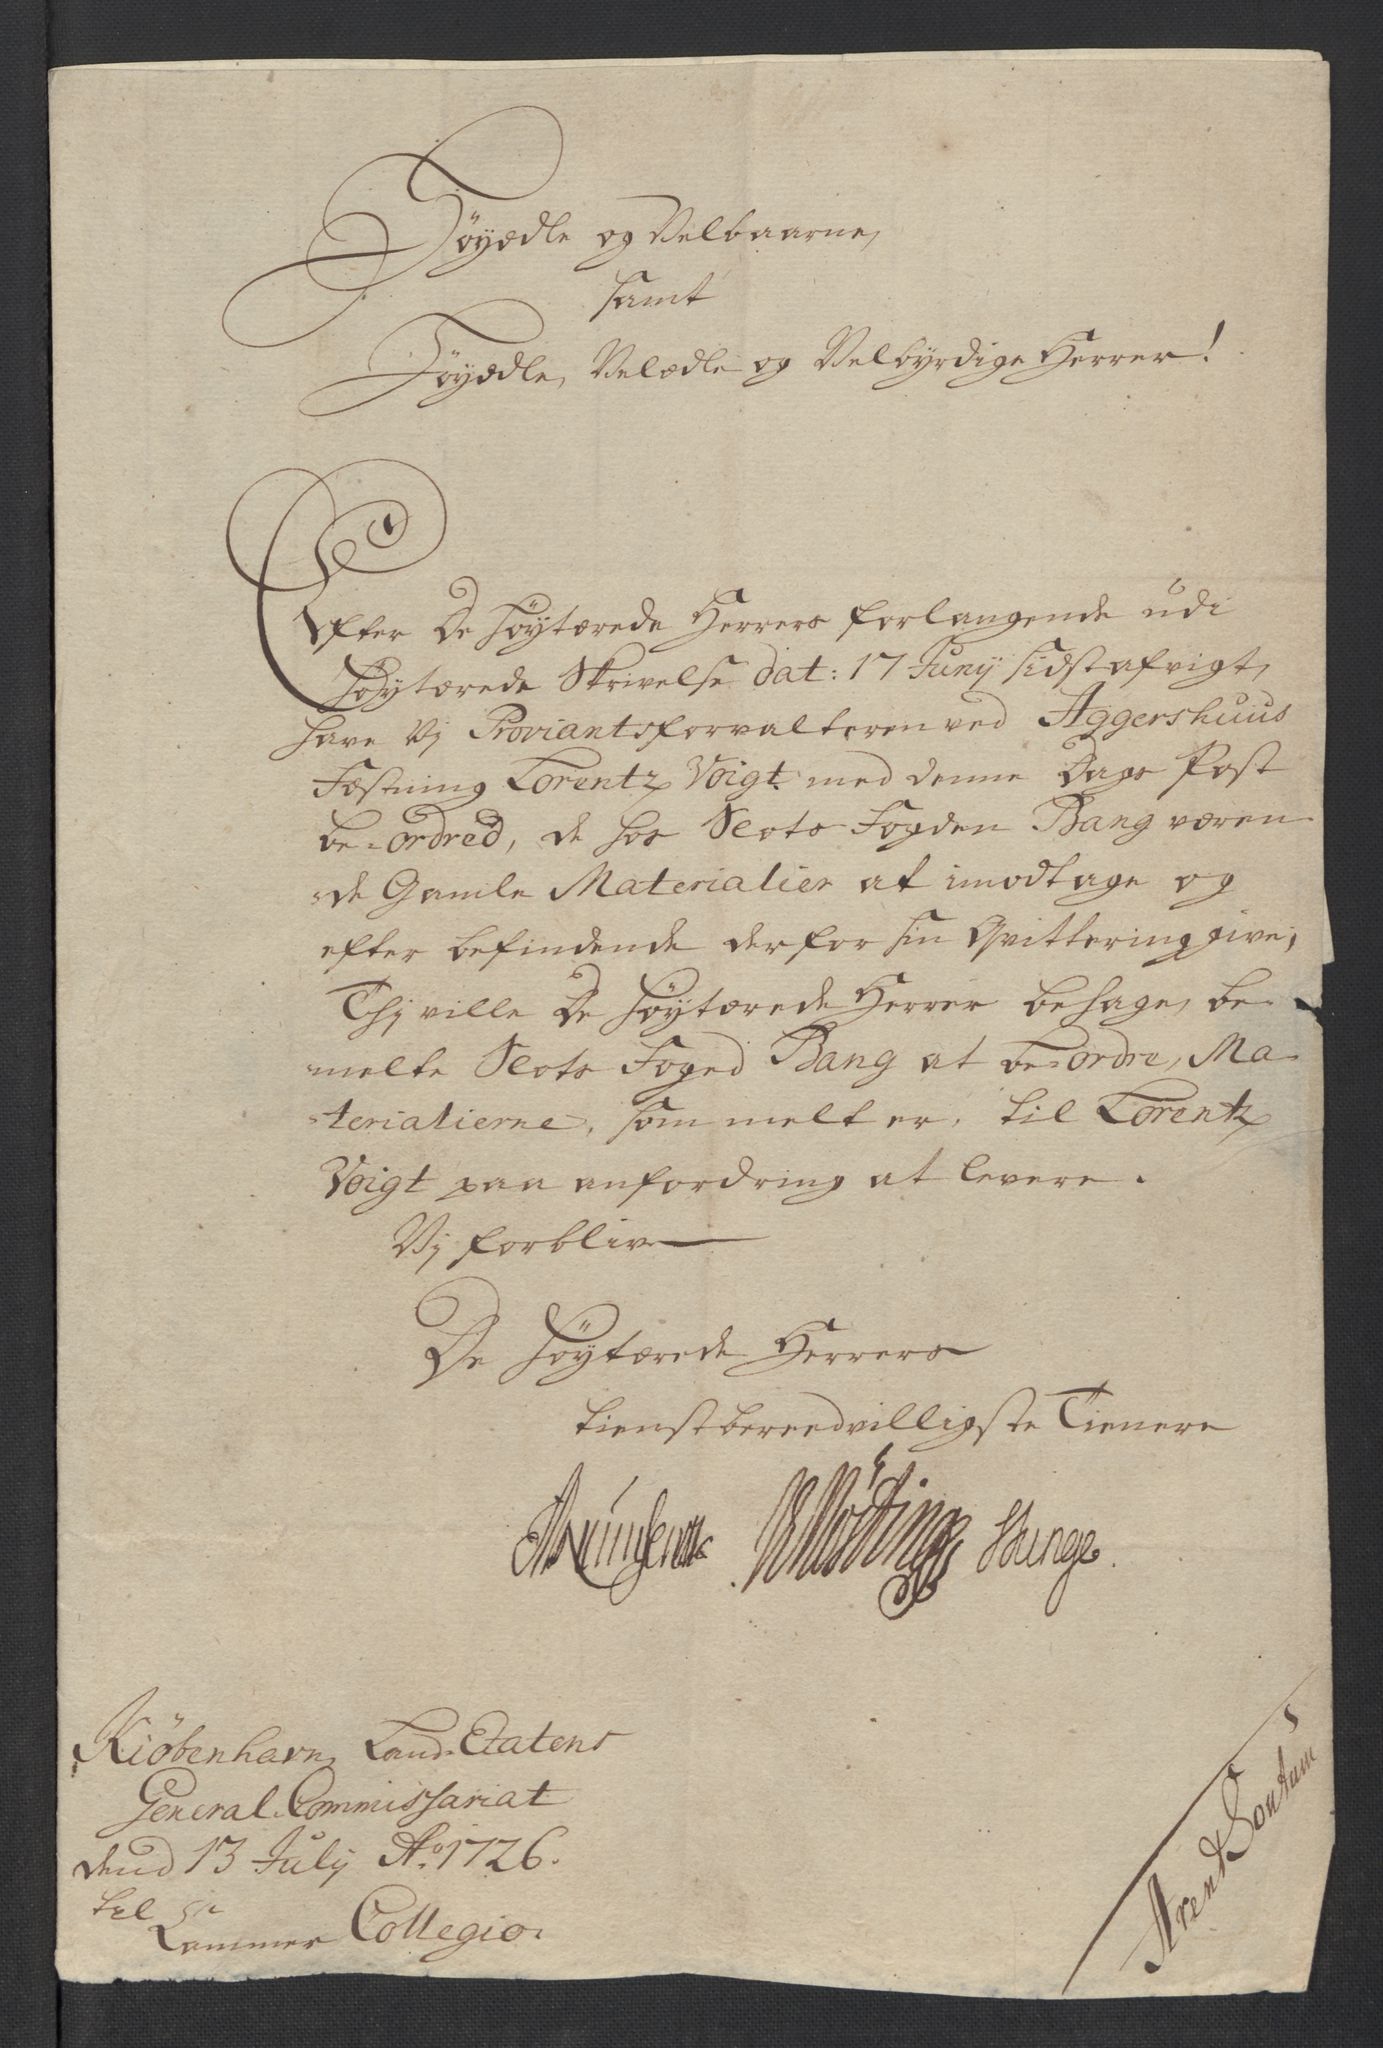 Høyædle og Velbaarne,
samt
Høyædle, Velædle og Velbyrdige Herrer!
Efter De Høytærede Herrers forlangende udi
Høytærede Skrivelse dat: 17 Juny sidst afvigt,
have Vj Proviantsforvalteren ved Aggershuus
Fæstning Lorentz Voigt med denne Dags Post
be-ordred, de hos Slots Fogden Bang væren-
de Gamle Materialier at imodtage og
efter befindende derfor sin Qvittering give;
Thj ville De Høytærede Herrer behage, be-
melte Slots Foged Bang at be-ordre, Ma-
terialierne, som melt er, til Lorentz
Voigt paa anfordring at levere.
Vj forblive
De Høytærede Herrers
tienstbereedvilligste Tienere
Kiøbenhavn, Land-Etatens
General-Commissariat
dend 13 July Ao. 1726.
til
Cammer Collegio.
Arendt Sontum